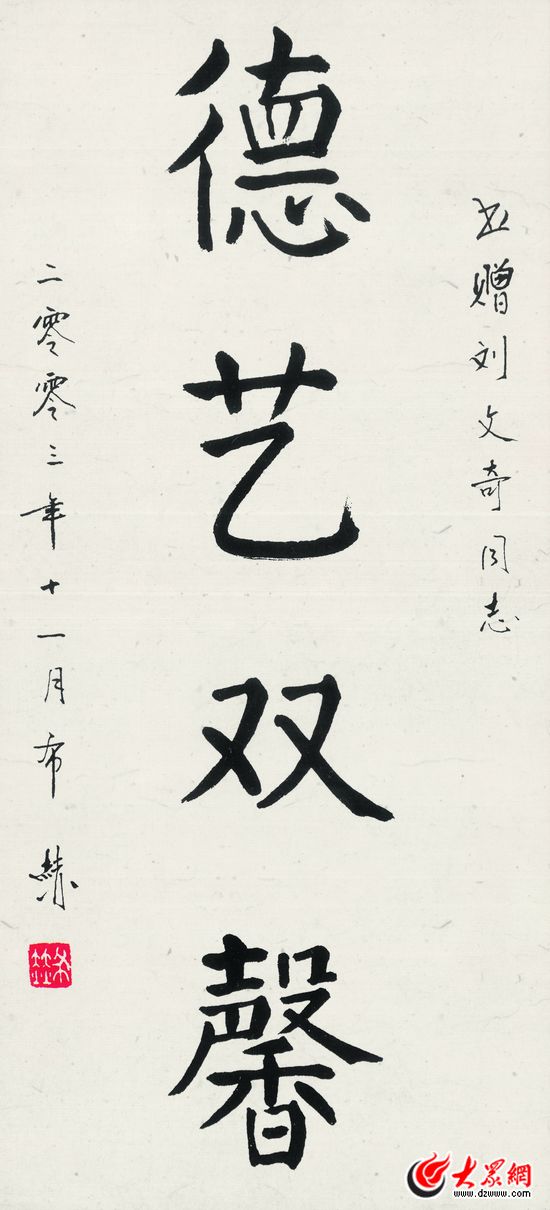 书赠刘文奇同志
德艺双馨
二零零三年十一月布赫
大眾網
www.dzwww.com